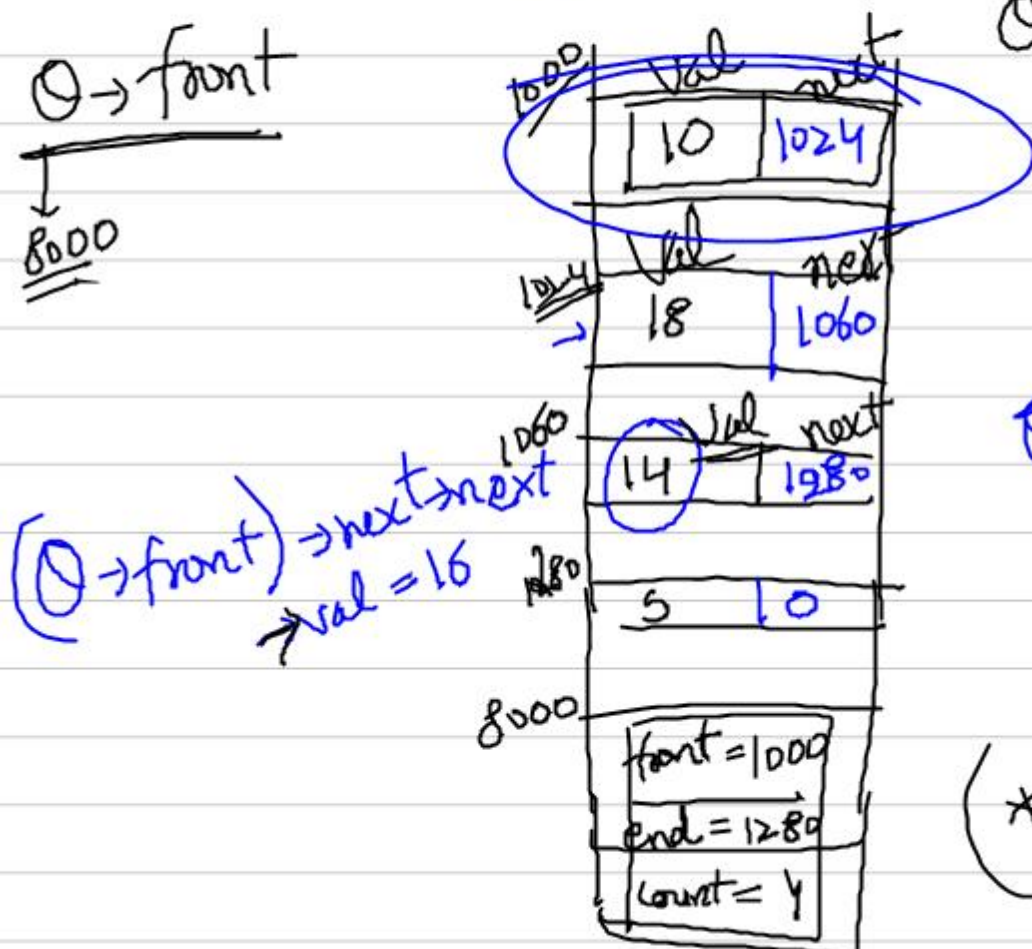 Q → front
8000
1000
val next
10 1024
val next
1024
18 1060
→
1060
val next
14 1280
(Q → front) → next → next
→ val = 16
1280
5 0
8000
front = 1000
end = 1280
count = 4